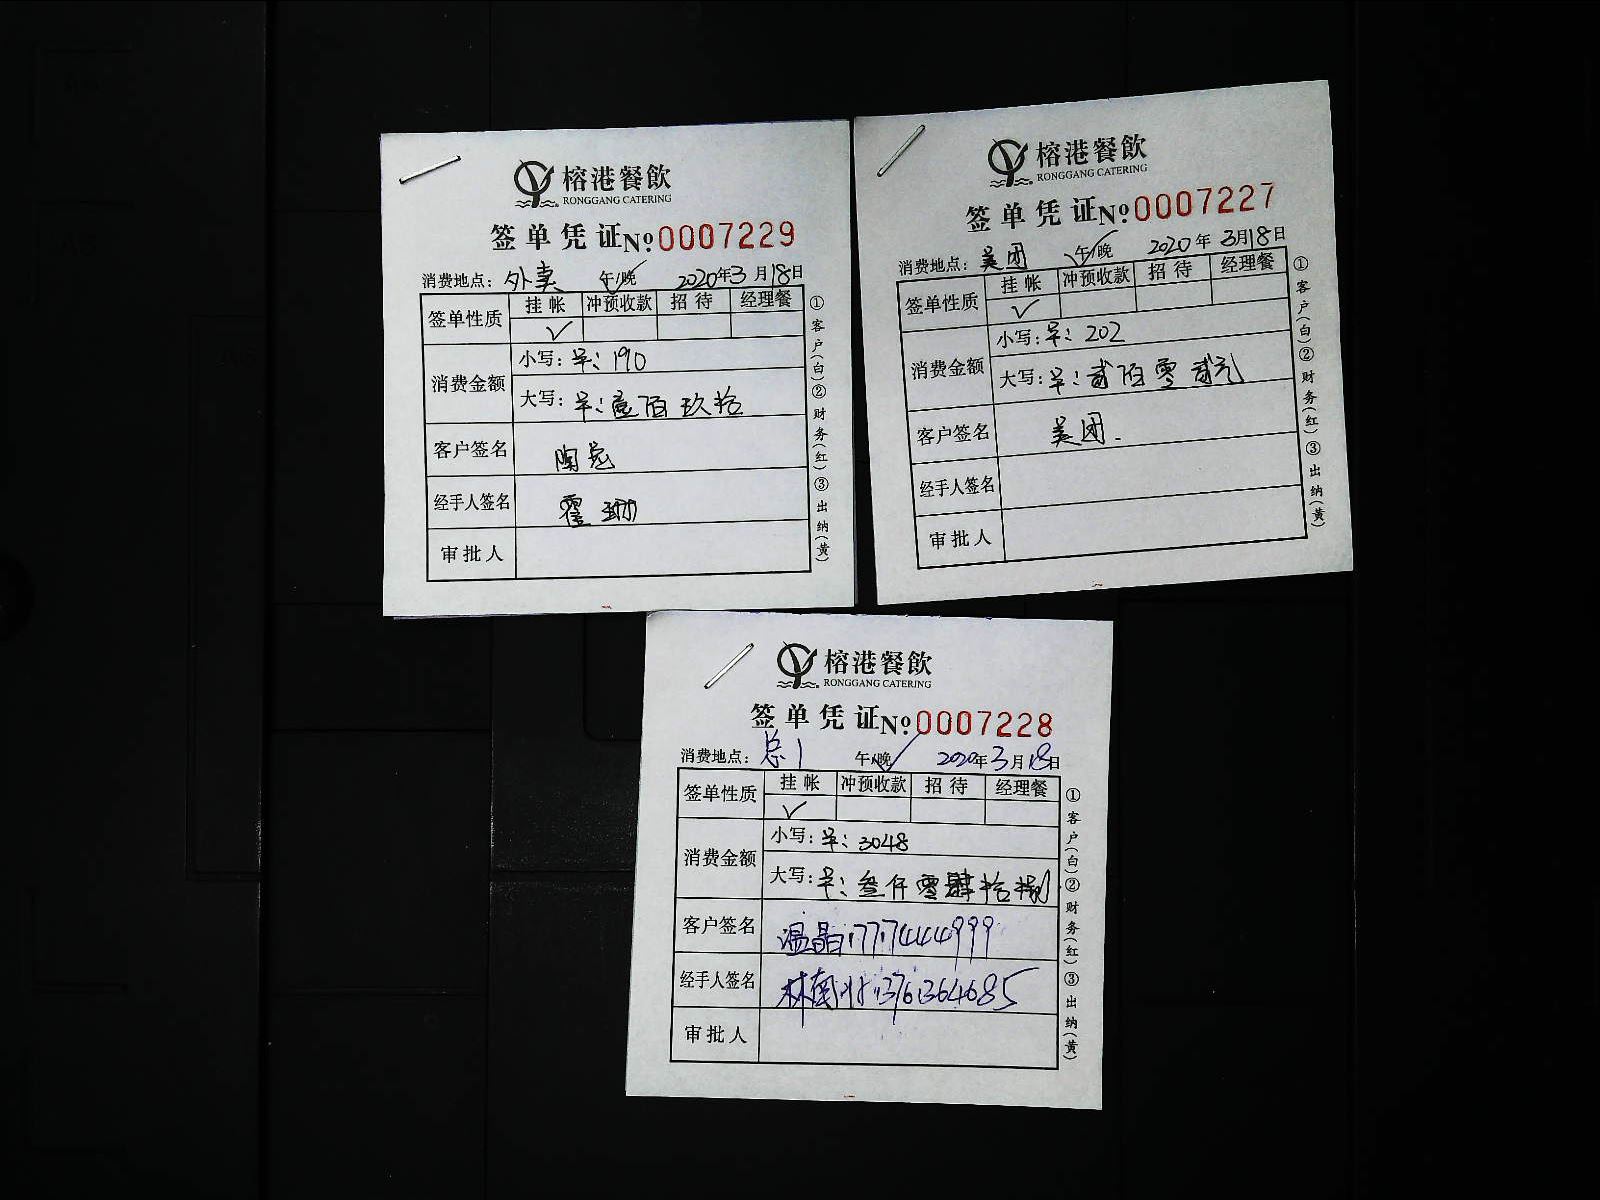 榕港餐飲
RONGGANG CATERING
签单凭证№0007229
消费地点：外卖 午/晚 2020年3月18日
签单性质 挂帐 冲预收款 招待 经理餐
✓
消费金额 小写：￥：190
大写：￥：壹佰玖拾
客户签名
经手人签名 霍珊
审批人
①客户(白)②财务(红)③出纳(黄)
榕港餐飲
RONGGANG CATERING
签单凭证№0007227
消费地点：美团 午/晚 2020年3月18日
签单性质 挂帐 冲预收款 招待 经理餐
✓
消费金额 小写：￥：202
大写：￥：贰佰零贰元
客户签名 美团.
经手人签名
审批人
①客户(白)②财务(红)③出纳(黄)
榕港餐飲
RONGGANG CATERING
签单凭证№0007228
消费地点：总1 午/晚 2020年3月18日
签单性质 挂帐 冲预收款 招待 经理餐
✓
消费金额 小写：￥：3048
大写：￥：叁仟零肆拾捌
客户签名 温晶17717444999
经手人签名
审批人
①客户(白)②财务(红)③出纳(黄)